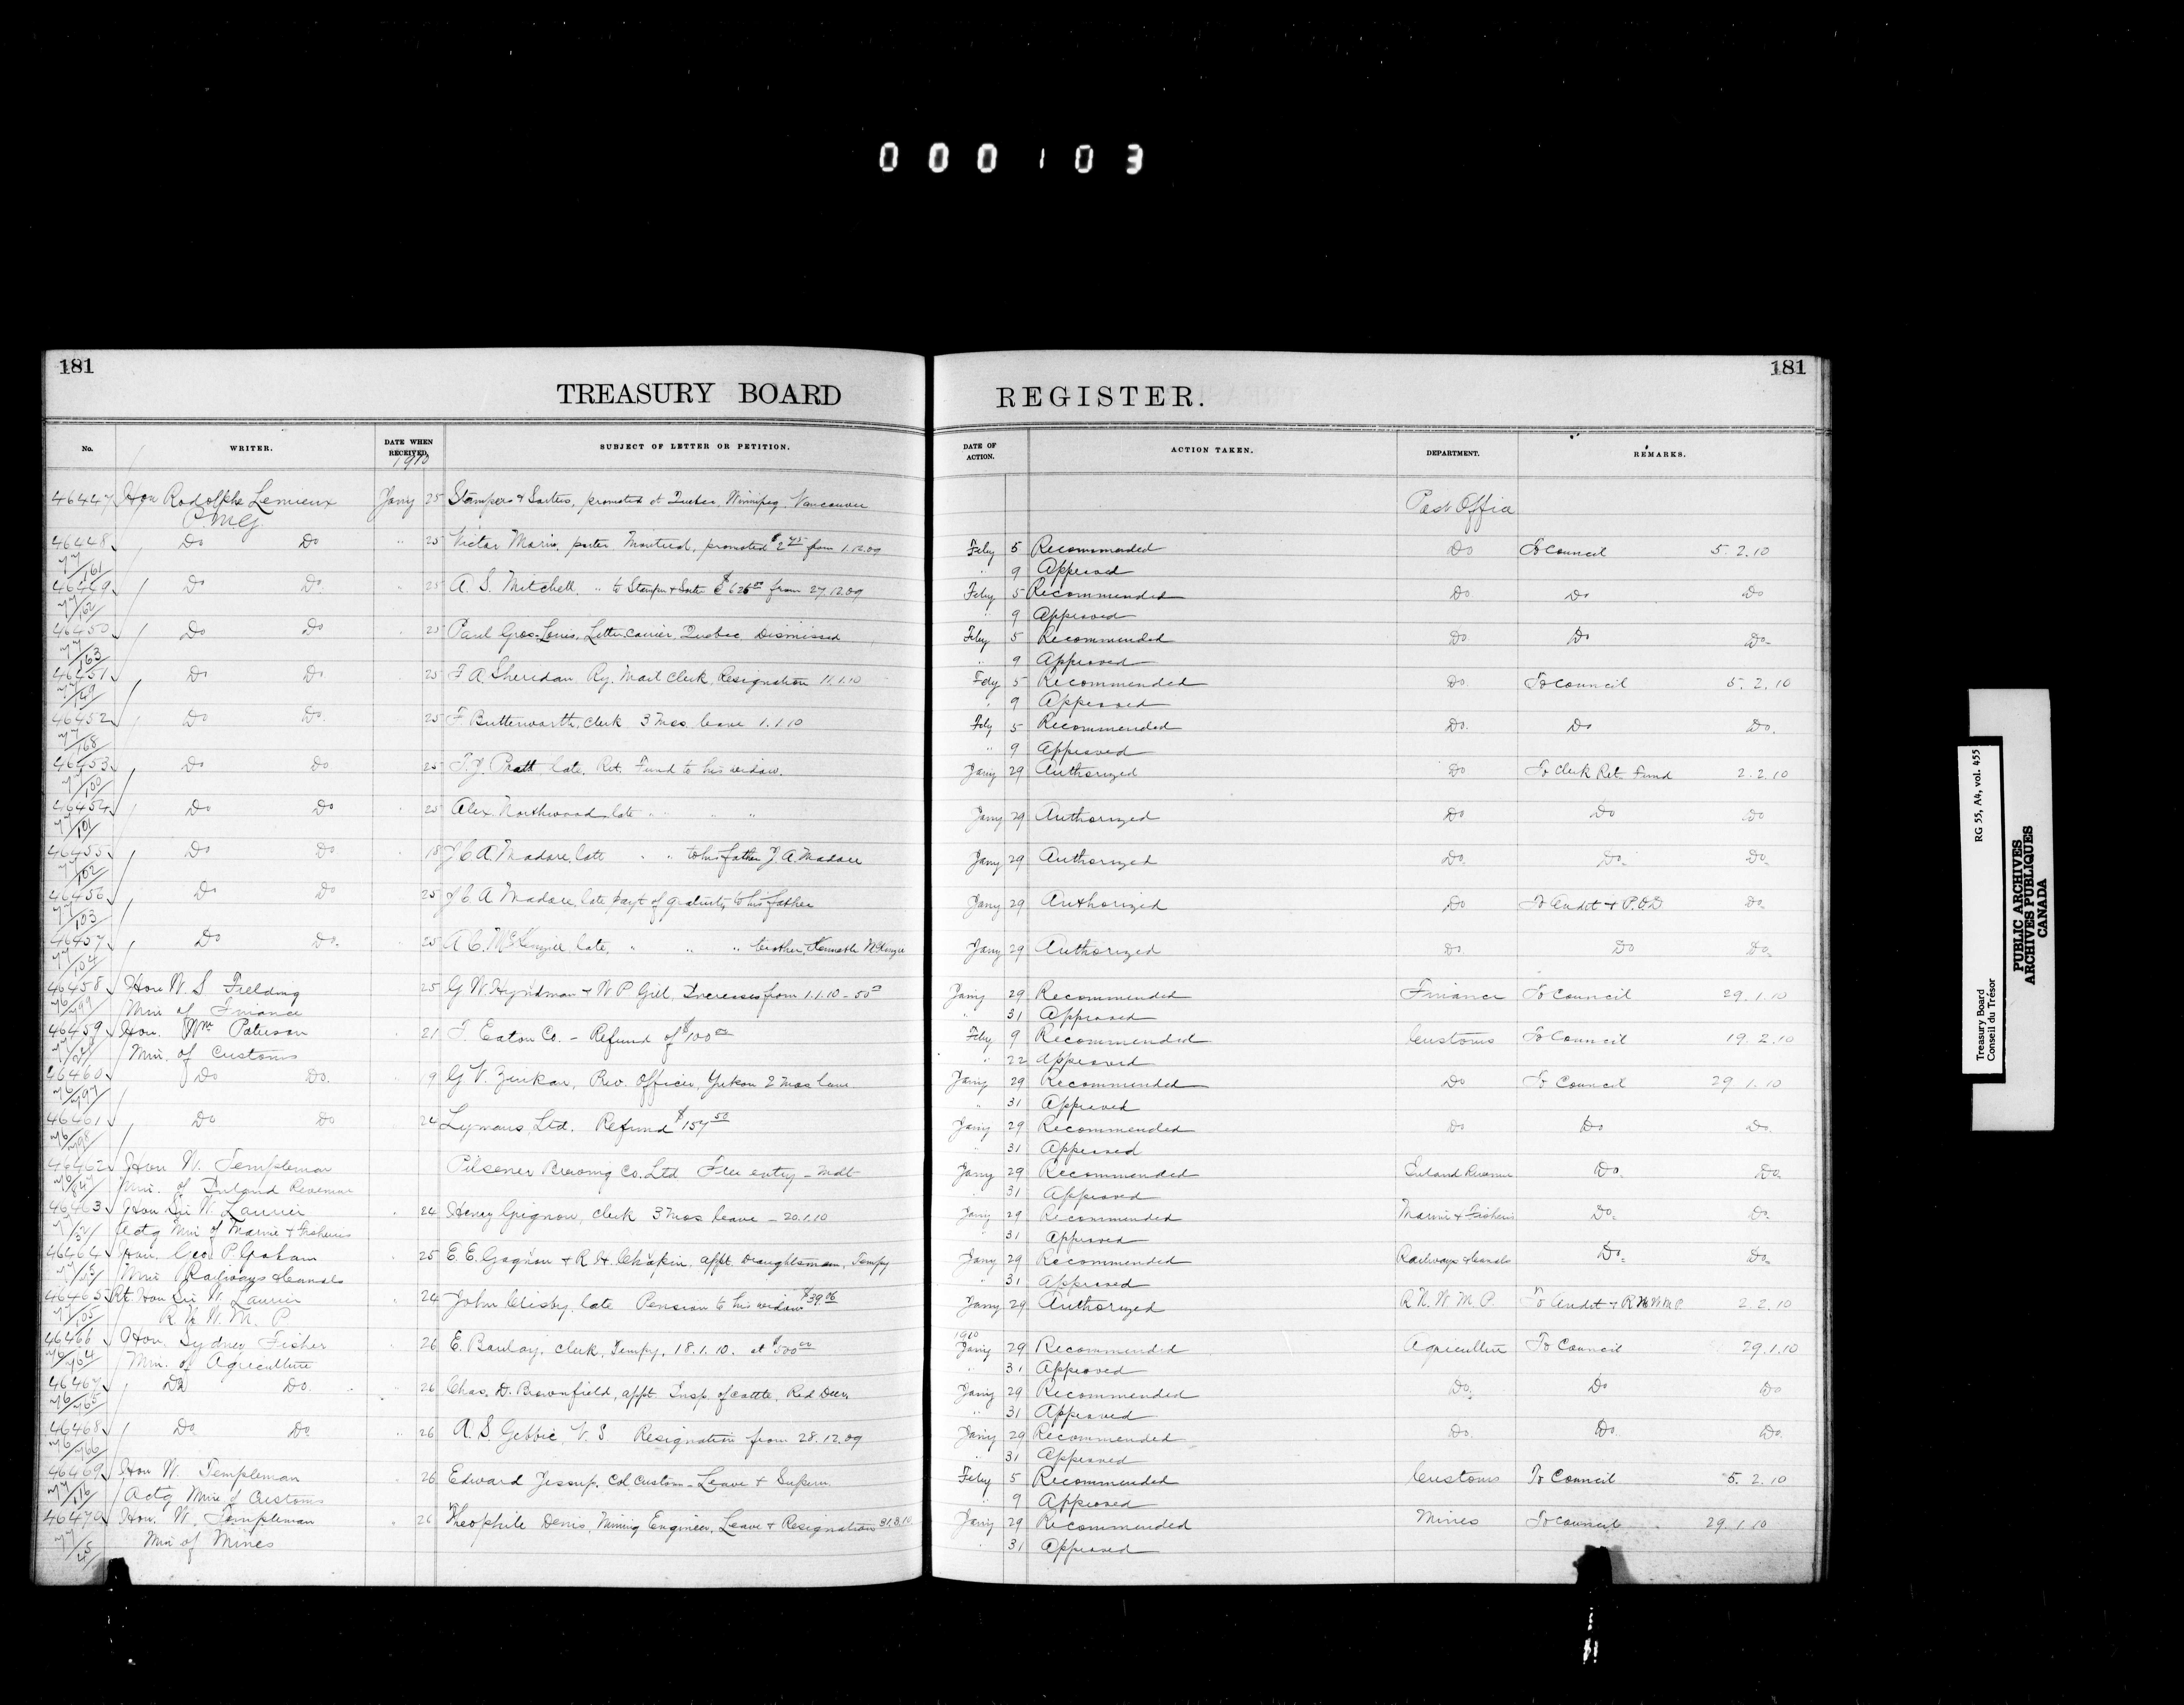 000103
181
181
TREASURY BOARD REGISTER.
No. WRITER. DATE WHEN RECEIVED. SUBJECT OF LETTER OR PETITION. DATE OF ACTION. ACTION TAKEN. DEPARTMENT. REMARKS.
1910
46447 Hon Rodolphe Lemieux Jany 25 Stampers & Sorters, promoted at Quebec, Winnipeg, Vancouver Post Office
P.M.G.
46448 Do Do " 25 Victor Marin, porter, Montreal, promoted from 1.12.09 Feby 5 Recommended Do To Council 5.2.10
77/161 " 9 Approved
46449 Do Do " 25 A. S. Mitchell, " to Stamper & Sorter from 27.12.09 Feby 5 Recommended Do Do Do
77/162 " 9 Approved
46450 Do Do 25 Paul Gros-Louis, Letter Carrier, Quebec, Dismissed Feby 5 Recommended Do Do Do
77/163 " 9 Approved
46451 Do Do 25 F A Sheridan Ry. Mail Clerk, Resignation 11.1.10 Feby 5 Recommended Do To Council 5.2.10
9 Approved
46452 Do Do 25 F Butterworth, clerk 3 mos leave 1.1.10 Feby 5 Recommended Do Do Do
77/168 " 9 Approved
46453 Do Do 25 T. J. Pratt late, Ret. Fund to his widow. Jany 29 Authorized Do To Clerk Ret. Fund 2.2.10
77/100
46454 Do Do 25 Alex. Northwood, late " " " Jany 29 Authorized Do Do Do
77/101
46455 Do Do 18 J C A Madore, late " " to his father J. A. Madore Jany 29 Authorized Do Do Do
77/102
46456 Do Do 25 J C A Madore, late payt of gratuity to his father Jany 29 Authorized Do To Audit & P.O.D Do
77/103
46457 Do Do 25 A. C. McKenzie late, " " " brother, Kenneth McKenzie Jany 29 Authorized Do Do Do
77/104
46458 Hon W. S Fielding 25 G. W. Hyndman & W P Gill, Increases from 1.1.10 - 50 Jany 29 Recommended Finance To Council 29.1.10
Min of Finance " 31 Approved
46459 Hon. Wm Paterson 21 T. Eaton Co. - Refund of $100.00 Feby 9 Recommended Customs To Council 19.2.10
Min. of Customs " 22 Approved
46460 Do Do 19 G. V. Zinkan, Rev. Officer, Yukon 2 mos leave Jany 29 Recommended Do To Council 29.1.10
" 31 Approved
46461 Do Do 24 Lymans, Ltd. Refund $157.50 Jany 29 Recommended Do Do Do
31 Approved
46462 Hon W. Templeman Pilsener Brewing Co. Ltd Free entry - malt Jany 29 Recommended Inland Revenue Do Do
Min. of Inland Revenue 31 Approved
46463 Hon Sir W. Laurier 24 Henry Grignon, clerk 3 mos leave - 20.1.10 Jany 29 Recommended Marine & Fisheries Do Do
Actg Min of Marine & Fisheries 31 Approved
46464 Hon. Geo. P. Graham 25 E. E. Gagnon & R. H. Chapin, appt. Draughtsmen, Tempy Jany 29 Recommended Railways & Canals Do Do
Min Railways & Canals 31 Approved
46465 Rt. Hon Sir W. Laurier 24 John Clisby, late Pension to his widow $39.06 Jany 29 Authorized R.N.W.M.P. To Audit & R.N.W.M.P. 2.2.10
77/105 R. N. W. M. P
46466 Hon. Sydney Fisher 26 E. Barclay, clerk, Tempy, 18.1.10. at $500.00 1910 Jany 29 Recommended Agriculture To Council 29.1.10
76/764 Min. of Agriculture 31 Approved
46467 Do Do 26 Chas. D. Brownfield, appt Insp. of cattle, Red Deer Jany 29 Recommended Do Do Do
76/765 31 Approved
46468 Do Do " 26 A. S. Gebbie, V. S. Resignation from 28.12.09 Jany 29 Recommended Do Do Do
76/766 31 Approved
46469 Hon W. Templeman 26 Edward Jessup, Col Customs - Leave & Superan. Feby 5 Recommended Customs To Council 5.2.10
77/116 Actg Min of Customs " 9 Approved
46470 Hon. W. Templeman 26 Theophile Denis, Mining Engineer, Leave & Resignation 31.3.10 Jany 29 Recommended Mines To Council 29.1.10
Min of Mines 31 Approved
Treasury Board
Conseil du Trésor
RG 55, A4, vol. 455
PUBLIC ARCHIVES
ARCHIVES PUBLIQUES
CANADA